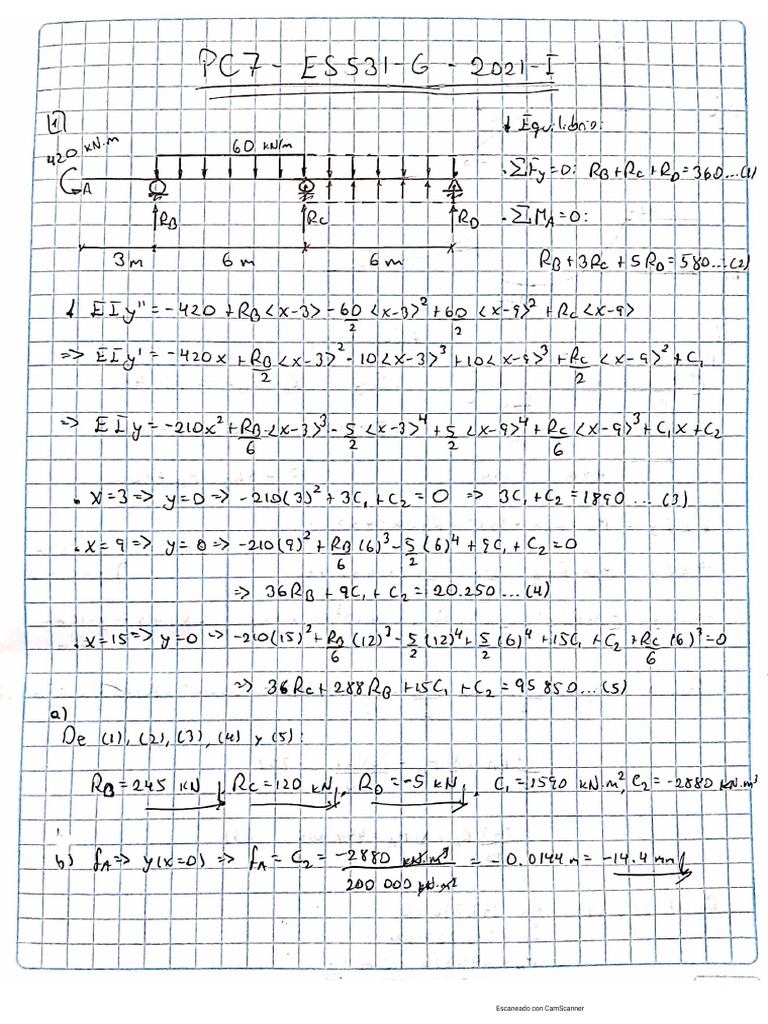 PC7 - ES531-G - 2021-I
1
420 kN.m
60 kN/m
A
RB
RC
RD
3m
6m
6m
↓ Equilibrio:
. ΣFy=0: RB+RC+RD=360...(1)
. ΣMA=0:
RB+3RC+5RD=580...(2)
EIy''=-420+RB<x-3>-60/2<x-3>²+60/2<x-9>²+RC<x-9>
=> EIy'=-420x+RB/2<x-3>²-10<x-3>³+10<x-9>³+RC/2<x-9>²+C1
=> EIy=-210x²+RB/6<x-3>³-5/2<x-3>⁴+5/2<x-9>⁴+RC/6<x-9>³+C1x+C2
. x=3=> y=0=> -210(3)²+3C1+C2=0 => 3C1+C2=1890...(3)
. x=9=> y=0=> -210(9)²+RB/6(6)³-5/2(6)⁴+9C1+C2=0
=> 36RB+9C1+C2=20.250...(4)
. x=15=> y=0=> -210(15)²+RB/6(12)³-5/2(12)⁴+5/2(6)⁴+15C1+C2+RC/6(6)³=0
=> 36RC+288RB+15C1+C2=95850...(5)
a)
De (1),(2),(3),(4) y (5):
RB=245 kN, RC=120 kN, RD=-5 kN, C1=1590 kN.m², C2=-2880 kN.m³
b) fA=> y(x=0)=> fA=C2=-2880 kN.m³/200 000 kN.m²=-0.0144m=-14.4mm
Escaneado con CamScanner